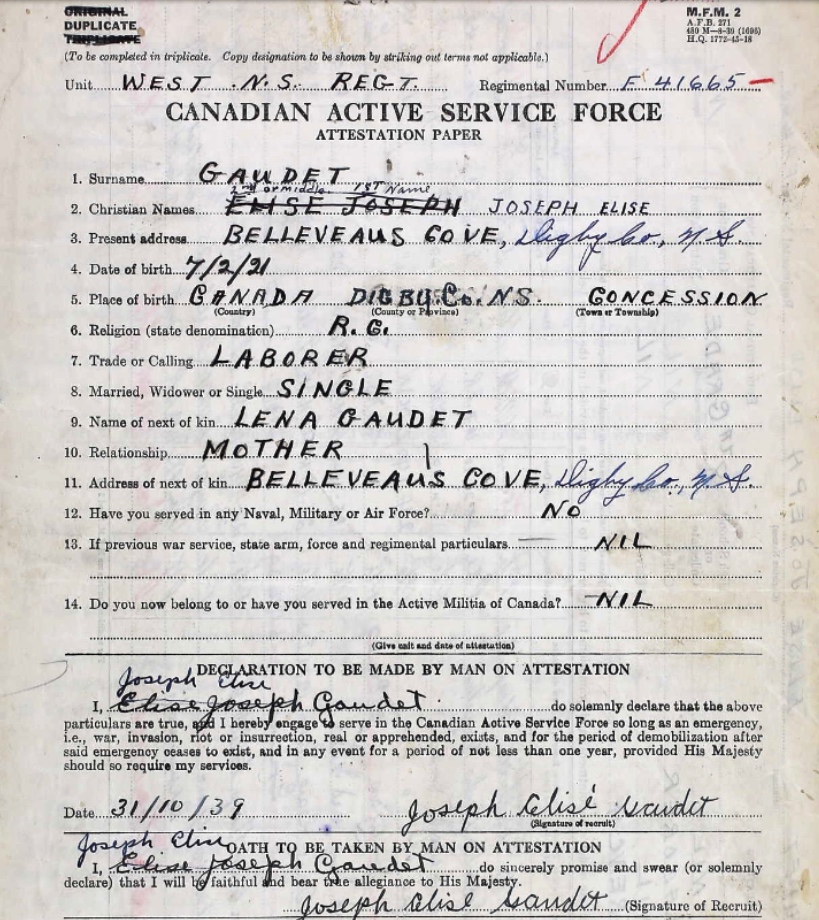 ORIGINAL
DUPLICATE
TRIPLICATE
M.F.M. 2
A.F.B. 271
480 M—8-39 (1696)
H.Q. 1772-45-18
(To be completed in triplicate. Copy designation to be shown by striking out terms not applicable.)
Unit WEST .N.S. REGT. Regimental Number F 41665
CANADIAN ACTIVE SERVICE FORCE
ATTESTATION PAPER
1. Surname GAUDET
2nd or middle 1ST Name
2. Christian Names ELISE JOSEPH JOSEPH ELISE
3. Present address BELLEVEAUS COVE, Digby Co., N.S.
4. Date of birth 7/2/21
5. Place of birth CANADA DIGBY.Co.NS. CONCESSION
(Country) (County or Province) (Town or Township)
6. Religion (state denomination) R.C.
7. Trade or Calling LABORER
8. Married, Widower or Single SINGLE
9. Name of next of kin LENA GAUDET
10. Relationship MOTHER
11. Address of next of kin BELLEVEAUS COVE, Digby Co., N.S.
12. Have you served in any Naval, Military or Air Force? NO
13. If previous war service, state arm, force and regimental particulars — NIL
14. Do you now belong to or have you served in the Active Militia of Canada? NIL
(Give unit and date of attestation)
DECLARATION TO BE MADE BY MAN ON ATTESTATION
Joseph Elise
I, Elise Joseph Gaudet do solemnly declare that the above
particulars are true, and I hereby engage to serve in the Canadian Active Service Force so long as an emergency,
i.e., war, invasion, riot or insurrection, real or apprehended, exists, and for the period of demobilization after
said emergency ceases to exist, and in any event for a period of not less than one year, provided His Majesty
should so require my services.
Date 31/10/39 Joseph Elisé Gaudet
(Signature of recruit)
Joseph Elise
OATH TO BE TAKEN BY MAN ON ATTESTATION
I, Elise Joseph Gaudet do sincerely promise and swear (or solemnly
declare) that I will be faithful and bear true allegiance to His Majesty.
Joseph Elisé Gaudet (Signature of Recruit)